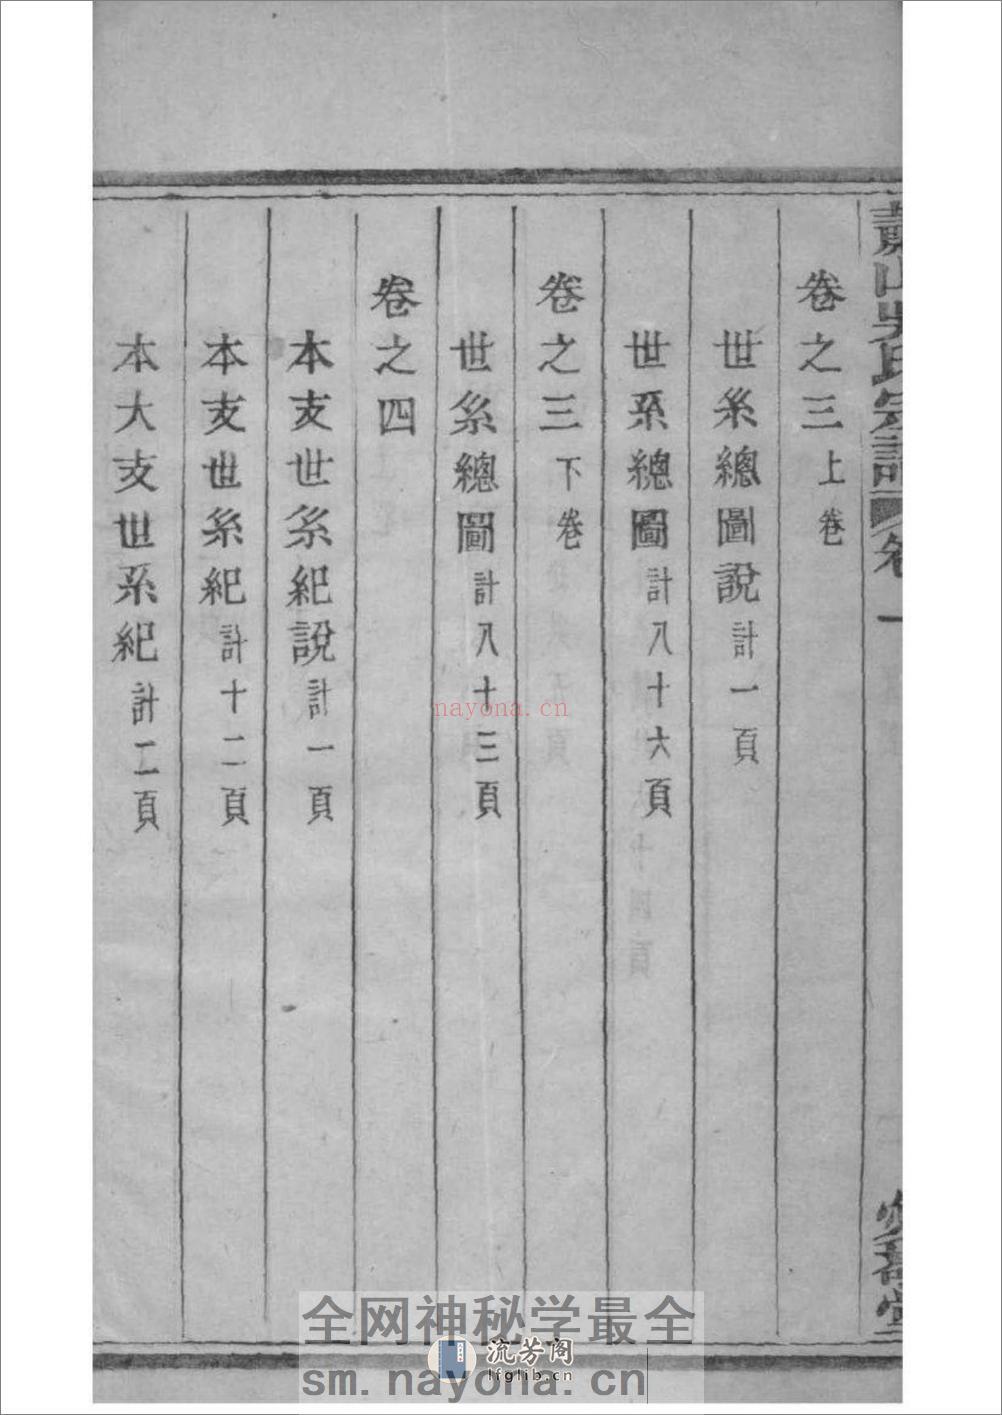 蕭山吳氏宗譜 卷一
卷之三上卷
世系總圖說計一頁
世系總圖計八十六頁
卷之三下卷
世系總圖計八十三頁
卷之四
本支世系紀說計一頁
本支世系紀計十二頁
本大支世系紀計二頁
nayona.cn
全网神秘学最全
流芳阁
lfglib.com
sm.nayona.cn